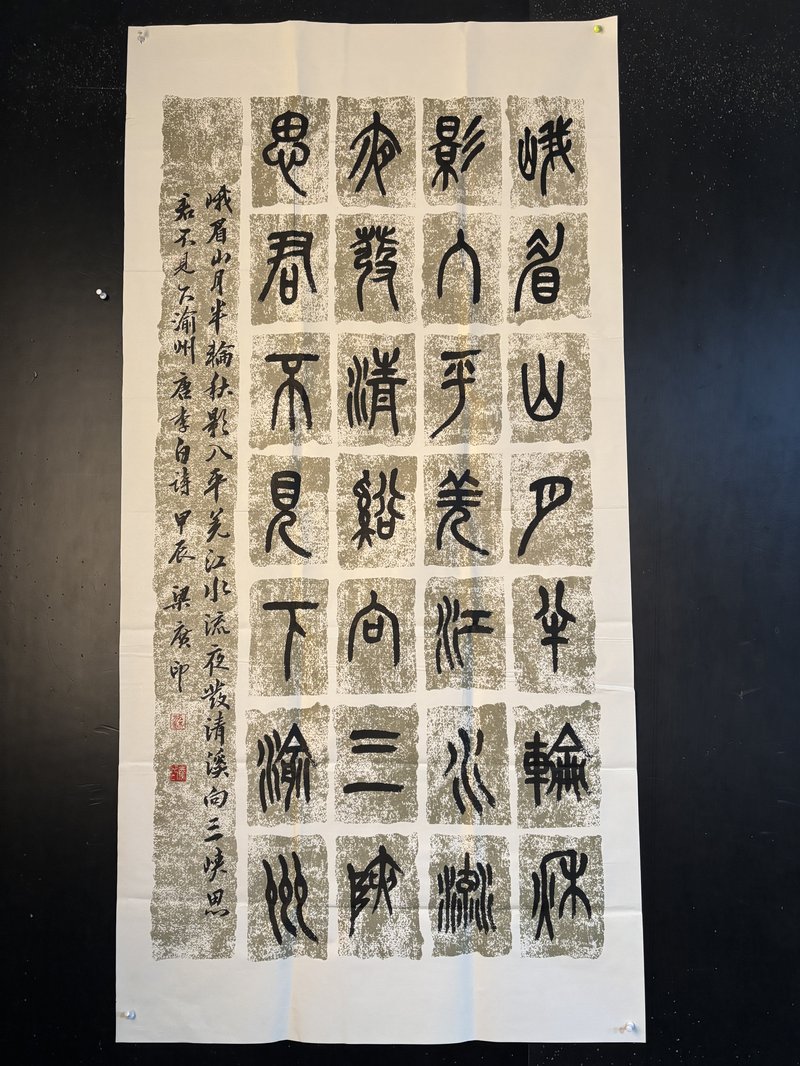 峨眉山月半輪秋
影入平羌江水流
夜發清谿向三陝
思君不見下渝州
峨眉山月半輪秋影入平羌江水流夜發清溪向三峡思
君不見下渝州 唐李白詩 甲辰 梁廣印